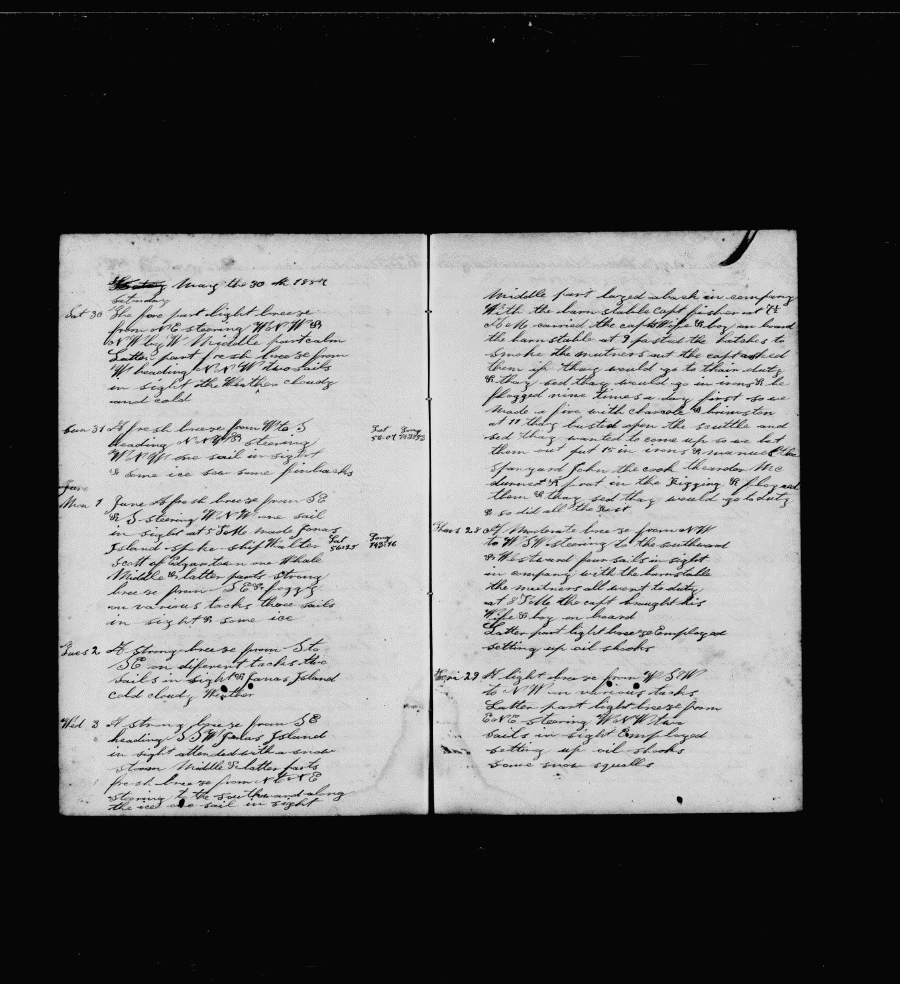 May the 30 th 1857
Saturday
Sat 30 The fore part light breeze
from NE steering WNW &
NW by W Middle part calm
Latter part fresh breeze from
W heading NNW two sails
in sight the Weather cloudy
and cold
Sun 31 A fresh breeze from W to S
heading NNW & steering
WNW one sail in sight
& some ice saw some finbacks
Lat Long
June
Mon 1 June A fresh breeze from SE
& S steering WNW one sail
in sight at 5 PM made Jonas
Island spoke ship Walter
Scott of Edgartown one Whale
Middle & latter parts strong
breeze from SE & foggy
on various tacks three sails
in sight & some ice
Lat Long
56=25 143=16
Tues 2 A strong breeze from S to
SE on diferent tacks two
Sails in sight & Jonas Island
cold cloudy Weather
Wed 3 A strong breeze from SE
heading SSW Jonas Island
in sight attended with a snow
storm Middle & latter parts
fresh breeze from N to NE
steering to the southward along
the ice one sail in sight
Middle part layed aback in company
With the barnstable Capt fisher at
AM carried the capts Wife & boy on board
the barnstable at 9 fasted the hatches to
smoke the mutners out the capt asked
them if thay would go to thair duty
& thay sed thay would go in irons & be
flogged nine times a day first so we
made a fire with charcole & brimston
at 11 thay busted open the scuttle and
sed thay wanted to come up so we let
them out put 15 in irons & manuel the
spanyard John the cook theander Mc
& poat in the Rigging & floged
them & thay sed thay would go to duty
& so did all the Rest
Thurs 28 A Moderate breeze from NW
to WSW steering to the southward
& Westward four sails in sight
in company with the barnstable
the mutners all went to duty
at 8 PM the capt brought his
Wife & boy on board
Latter part light breeze Employed
setting up oil shooks
Fri 29 A light breeze from WSW
to NW on various tacks
Latter part light breeze from
ENE steering WNW two
Sails in sight Employed
setting up oil shooks
some snow squalls